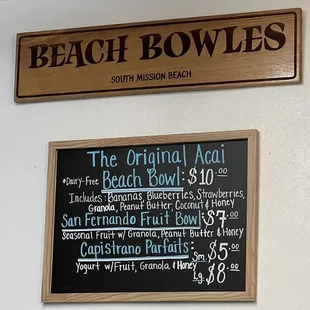 BEACH BOWLES
SOUTH MISSION BEACH
The Original Acai
*Dairy-Free Beach Bowl: $10.00
Includes: Bananas, Blueberries, Strawberries,
Granola, Peanut Butter, Coconut & Honey
San Fernando Fruit Bowl: $7.00
Seasonal Fruit w/ Granola, Peanut Butter & Honey
Capistrano Parfaits: Sm. $5.00
Yogurt w/Fruit, Granola & Honey Lg. $8.00